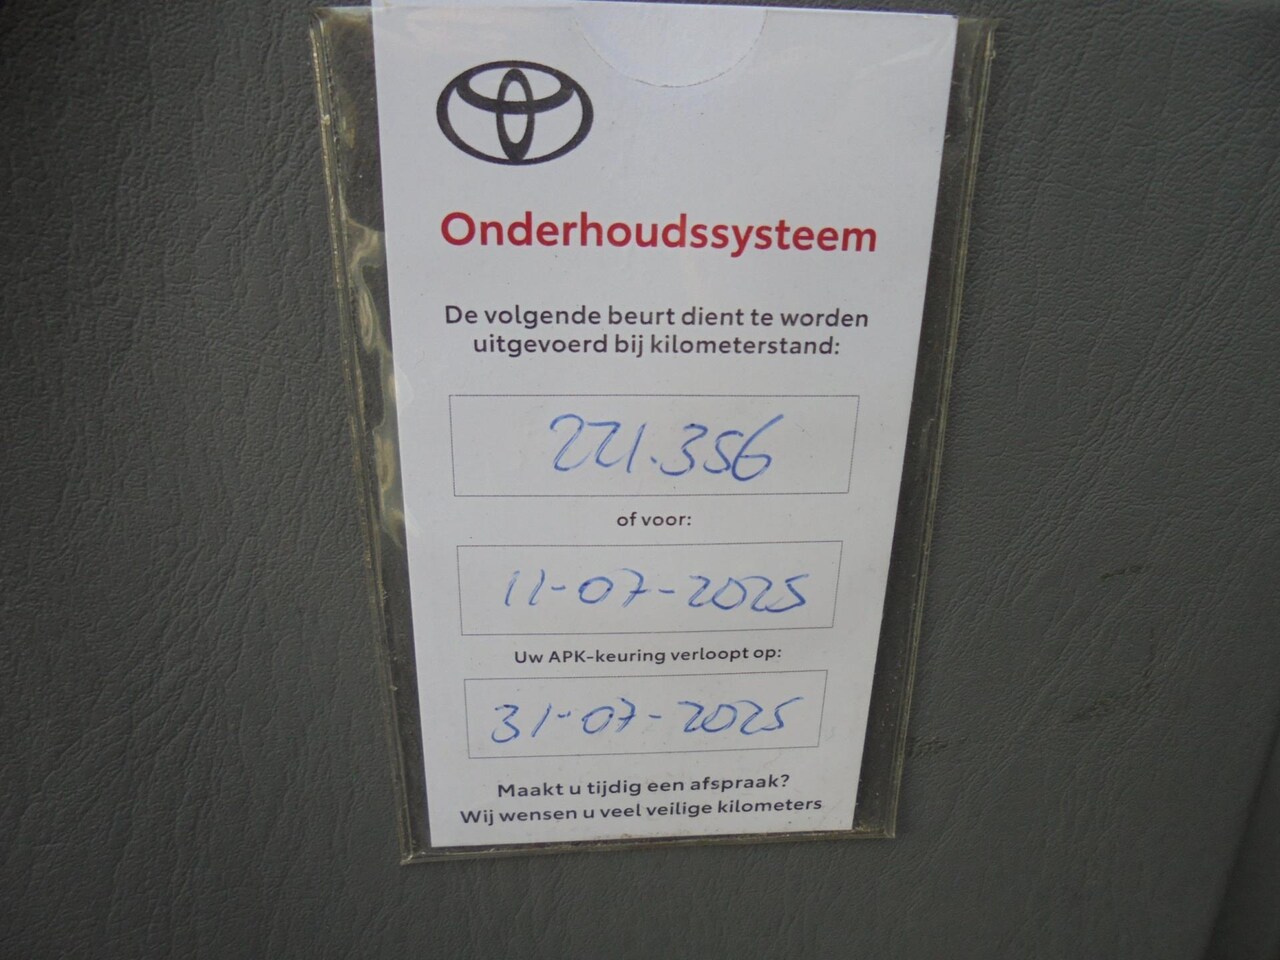 Onderhoudssysteem
De volgende beurt dient te worden
uitgevoerd bij kilometerstand:
221.356
of voor:
11-07-2025
Uw APK-keuring verloopt op:
31-07-2025
Maakt u tijdig een afspraak?
Wij wensen u veel veilige kilometers